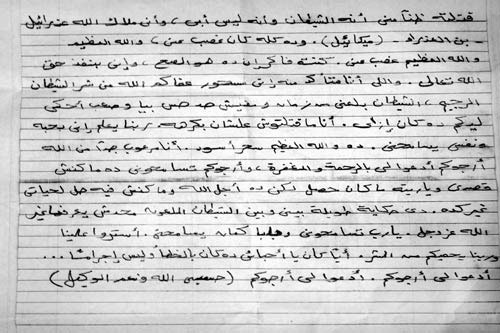 قتلته ظناً مني أنه الشيطان وأنه ليس أبي، وأن ملاك الله عزرائيل
بن العذراء (ميكائيل). وده كله كان غصب عني، والله العظيم
والله العظيم غصب عني. كنت فاكر إن ده هو الصح، وإني بنفذ حق
الله تعالى. واللي أنا متأكد منه إني مسحور عفاكم الله من شر الشيطان
الرجيم، الشيطان بلعني من زمان ومفيش حد حس بيا وصعب أحكي
ليكم ده كان إزاي. أنا ما قتلتوش علشان بكرهه ربنا يعلم إني بحبه
ونفسي يسامحني. ده والله العظيم سحر أسود. أنا مرعوب جداً من الله
أرجوكم أدعوا لي بالرحمة والمغفرة، وأرجوكم تسامحوني ده ما كنش
قصدي وياريته ما كان حصل لكن ده أجل الله وما كنش فيه حل لحياتي
غير كده. دي حكاية طويلة بيني وبين الشيطان الملعون محدش يعرفها غير
الله عز وجل. يارب تسامحوني وبابا كمان يسامحني. أستروا علينا
وربنا يحميكم من الشر. أياً كان يا أحبائي ده كان بالخطأ وليس إجراماً...
أدعوا لي أرجوكم. أدعوا لي أرجوكم (حسبي الله ونعم الوكيل)